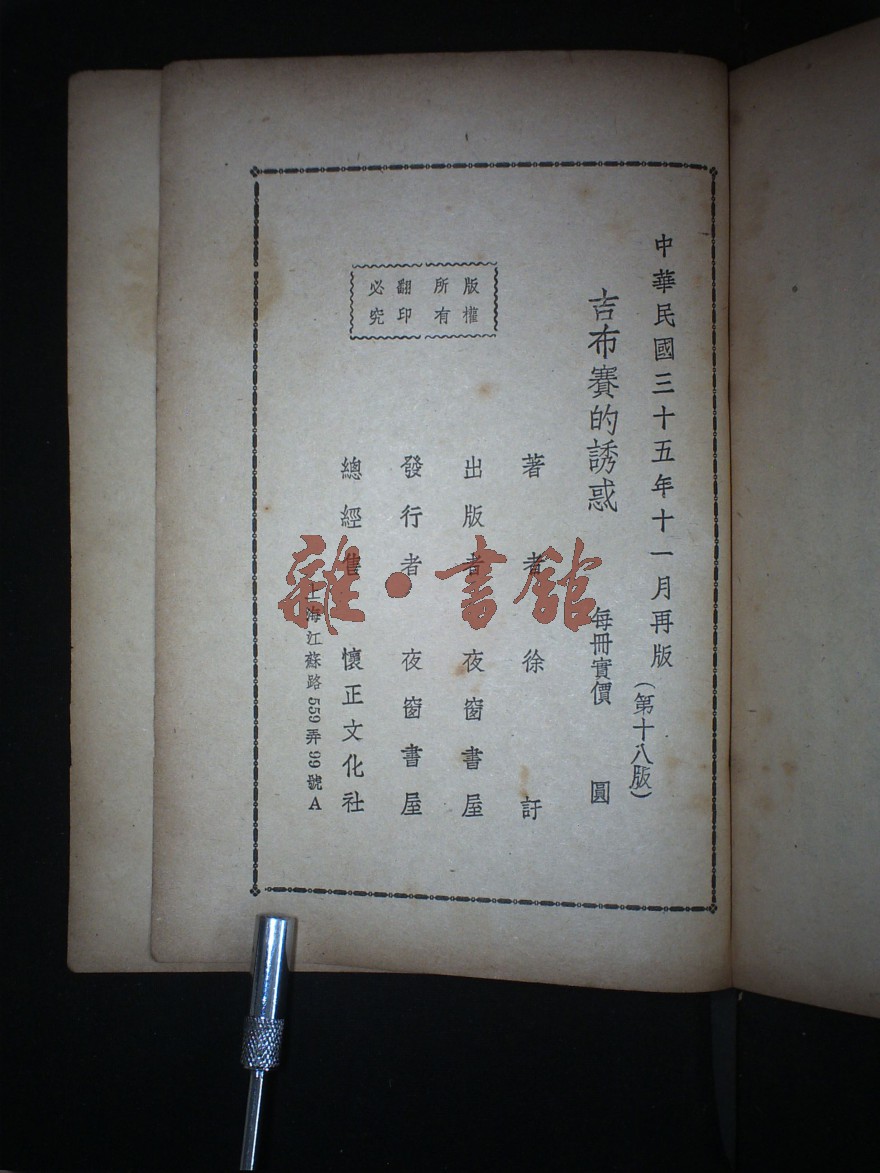 中華民國三十五年十一月再版(第十八版)
吉布賽的誘惑 每冊實價 圓
著者 徐訏
出版者 夜窗書屋
發行者 夜窗書屋
總經售 懷正文化社
上海江蘇路559弄99號A
版權
所有
翻印
必究
雜·書館